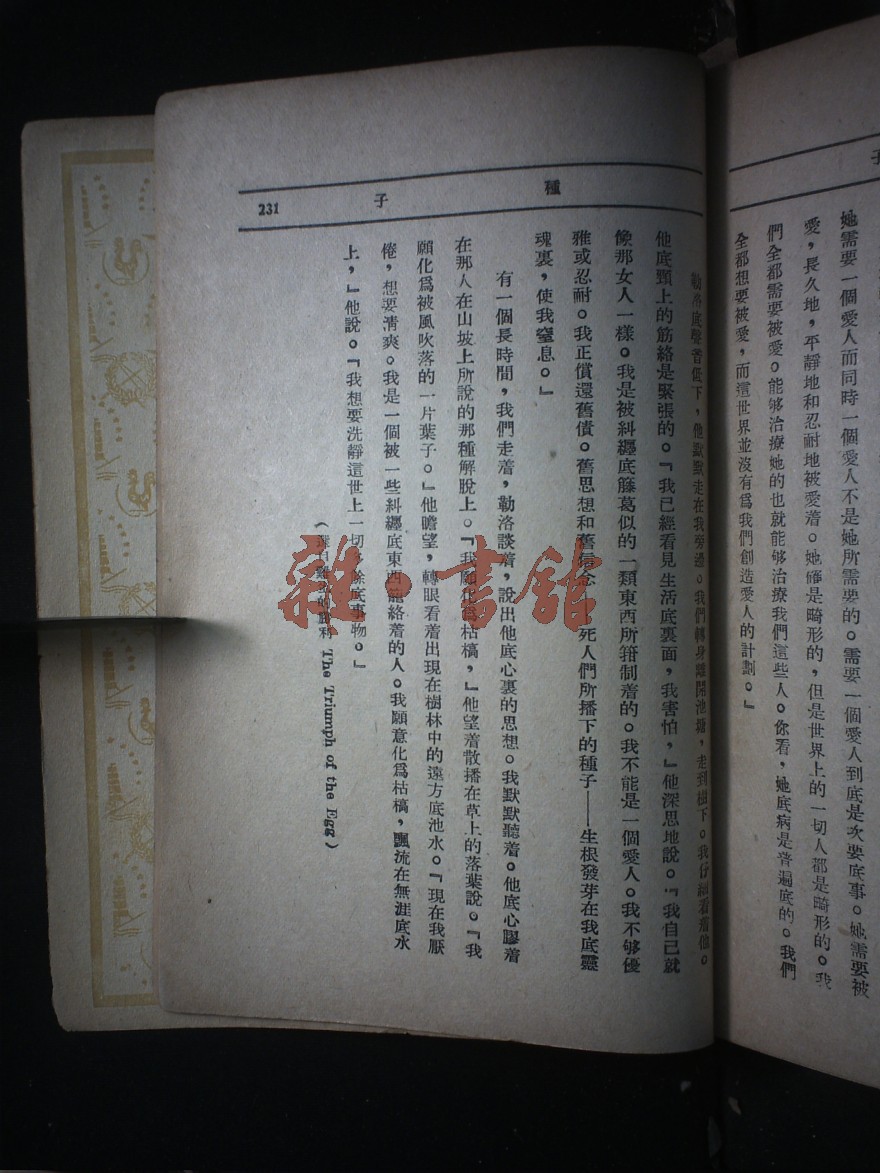 她需要一個愛人而同時一個愛人不是她所需要的。需要一個愛人到底是次要底事。她需要被
愛，長久地，平靜地和忍耐地被愛着。她確是畸形的，但是世界上的一切人都是畸形的。我
們全都需要被愛。能够治療她的也就能够治療我們這些人。你看，她底病是普遍底的。我們
全都想要被愛，而這世界並沒有爲我們創造愛人的計劃。』
種 子 231
勒洛底聲音低下，他默默走在我旁邊。我們轉身離開池塘，走到樹下。我仔細看着他。
他底頸上的筋絡是緊張的。『我已經看見生活底裏面，我害怕，』他深思地說。『我自己就
像那女人一樣。我是被糾纏底籐葛似的一類東西所箝制着的。我不能是一個愛人。我不够優
雅或忍耐。我正償還舊債。舊思想和舊信念——死人們所播下的種子——生根發芽在我底靈
魂裏，使我窒息。』
有一個長時間，我們走着，勒洛談着，說出他底心裏的思想。我默默聽着。他底心膠着
在那人在山坡上所說的那種解脫上。『我願化爲枯槁，』他望着散播在草上的落葉說。『我
願化爲被風吹落的一片葉子。』他瞻望，轉眼看着出現在樹林中的遠方底池水。『現在我厭
倦，想要清爽。我是一個被一些糾纏底東西籠絡着的人。我願意化爲枯槁，飄流在無涯底水
上，』他說。『我想要洗靜這世上一切多餘底事物。』
（ 的勝利 The Triumph of the Egg）
雜·書舘